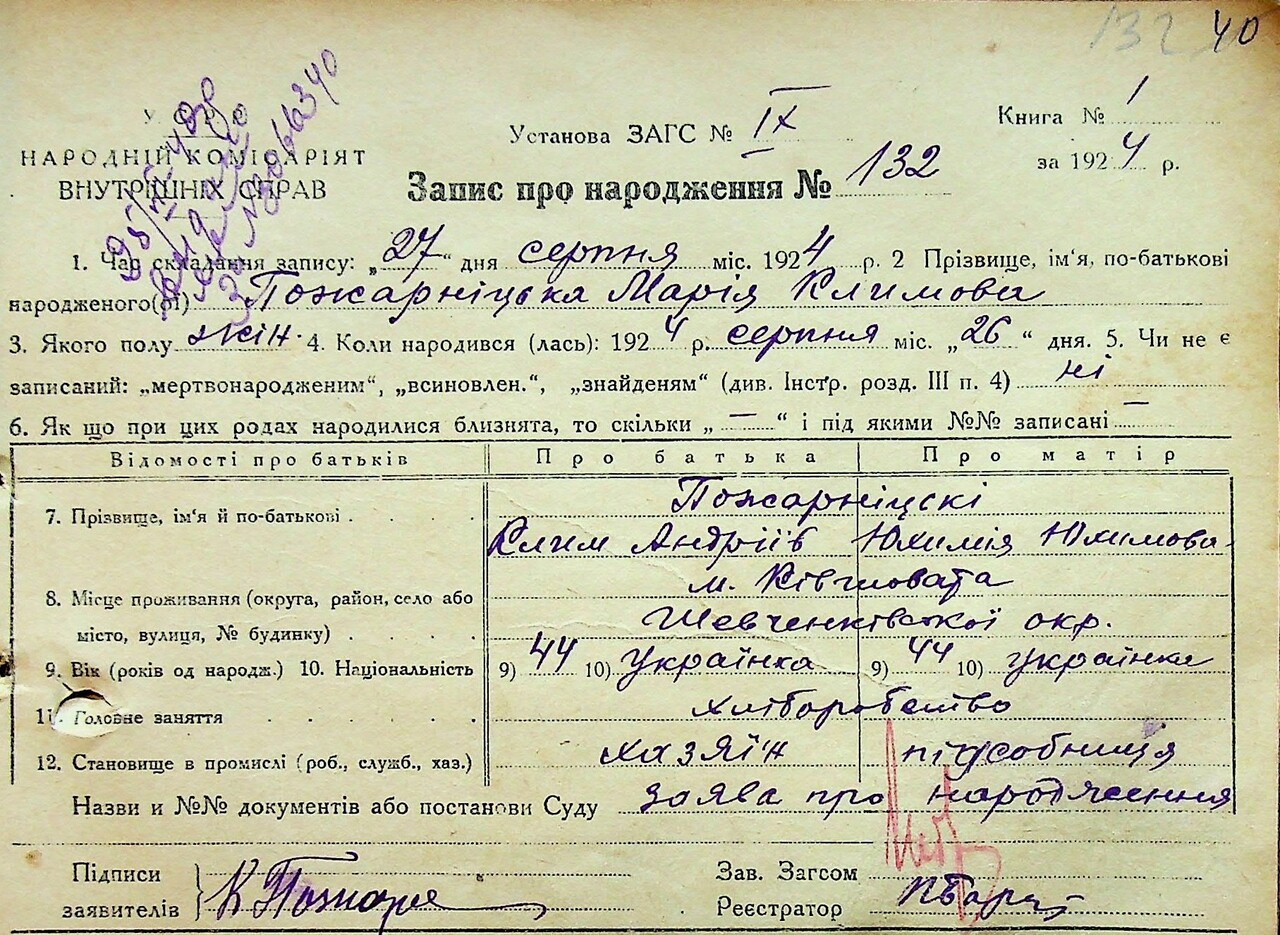 132 40
У. С. Р. Р.
НАРОДНІЙ КОМІСАРІЯТ
ВНУТРІШНІХ СПРАВ
Установа ЗАГС № IX
Книга № 1
за 1924 р.
Запис про народження № 132
1. Час складання запису: „27“ дня серпня міс. 1924 р. 2 Прізвище, ім'я, по-батькові
народженого(ої) Пожарніцька Марія Климова
3. Якого полу жін. 4. Коли народився (лась): 1924 р. серпня міс. „26“ дня. 5. Чи не є
записаний: „мертвонародженим“, „всиновлен.“, „знайденям“ (див. Інстр. розд. III п. 4) ні
6. Як що при цих родах народилися близнята, то скільки „ — “ і під якими №№ записані —
Відомості про батьків Про батька Про матір
Пожарніцскі
7. Прізвище, ім'я й по-батькові . . . .
Клим Андріїв Юхимія Юхимова
м. Ківшовата
8. Місце проживання (округа, район, село або
Шевченківської окр.
місто, вулиця, № будинку) . . . .
9. Вік (років од народж.) 10. Національність 9) 44 10) українка 9) 44 10) українка
11. Головне заняття . . . . . хліборобство
12. Становище в промислі (роб., служб., хаз.) хазяїн підсобниця
Назви и №№ документів або постанови Суду заява про народження
Підписи
заявителів К Пожар
Зав. Загсом
Реєстратор